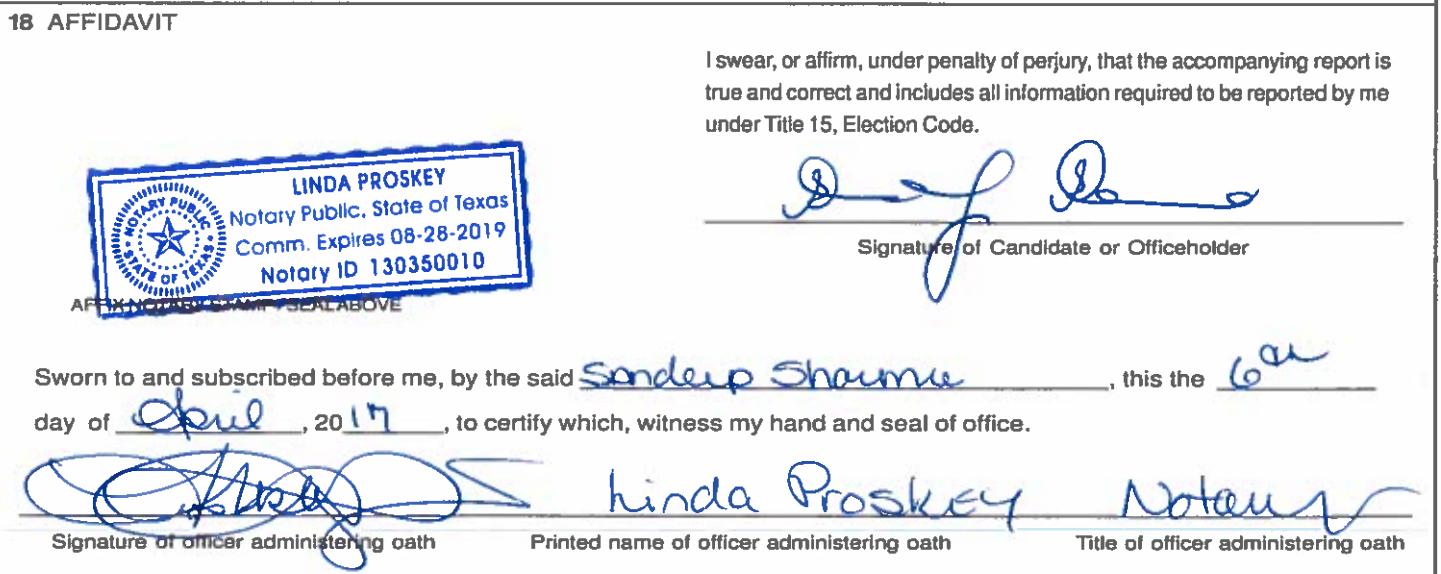 18 AFFIDAVIT
I swear, or affirm, under penalty of perjury, that the accompanying report is
true and correct and includes all information required to be reported by me
under Title 15, Election Code.
LINDA PROSKEY
Notary Public, State of Texas
Comm. Expires 08-28-2019
Notary ID 130350010
NOTARY PUBLIC
STATE OF TEXAS
Signature of Candidate or Officeholder
AFFIX NOTARY STAMP / SEAL ABOVE
Sworn to and subscribed before me, by the said Sandeep Sharma, this the 6th
day of April, 2017, to certify which, witness my hand and seal of office.
Linda Proskey Notary
Signature of officer administering oath Printed name of officer administering oath Title of officer administering oath